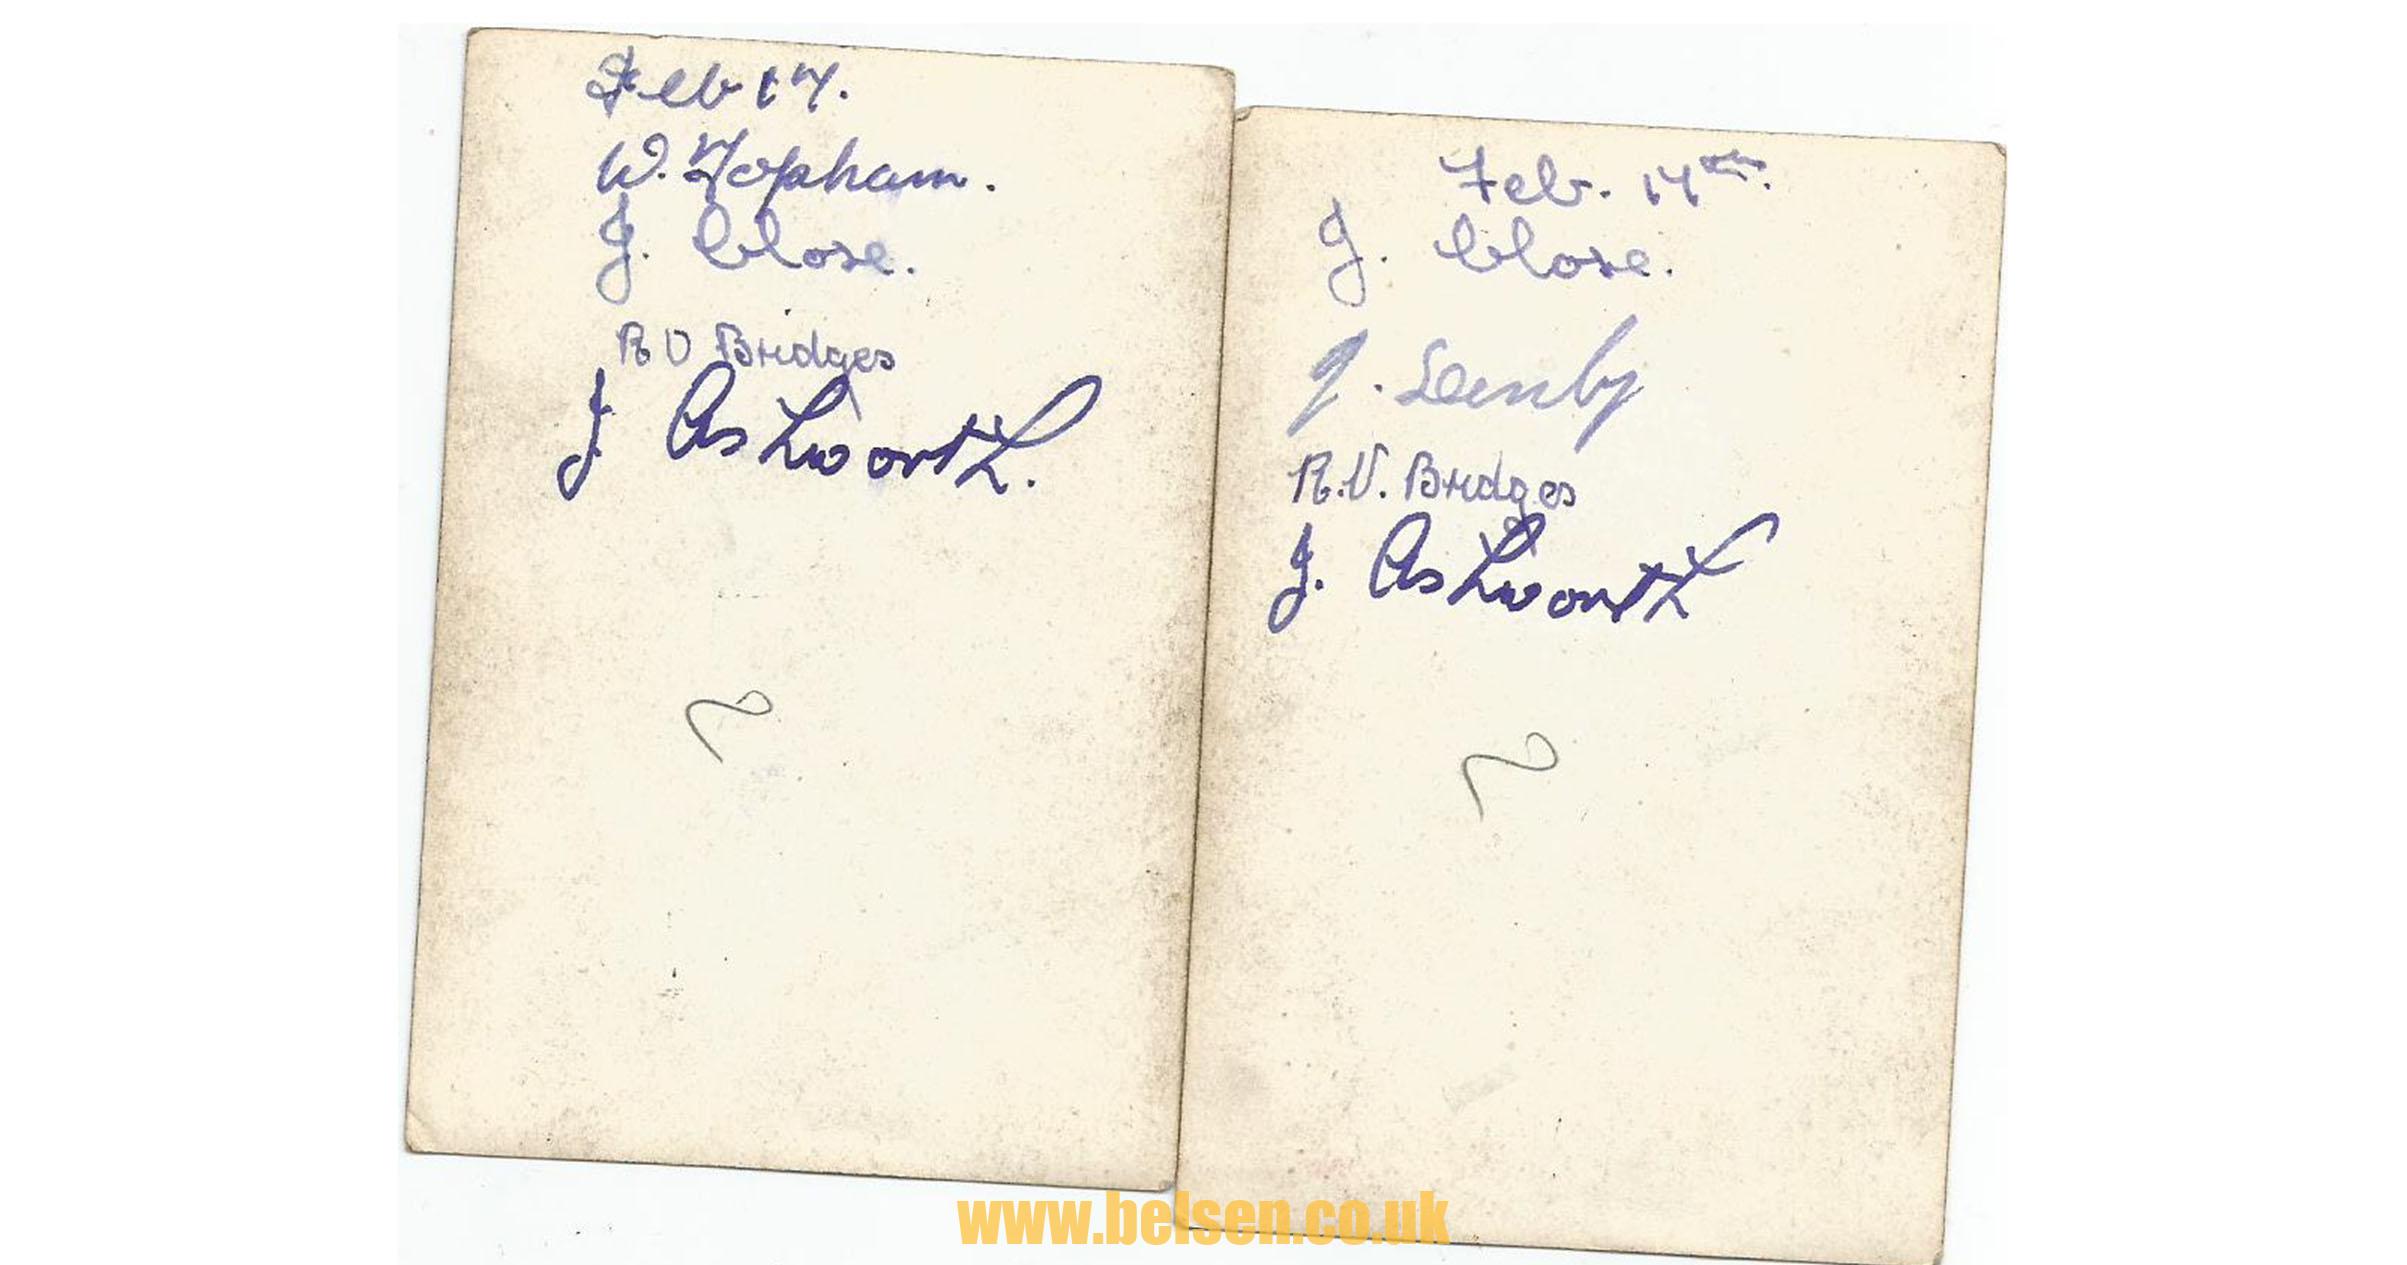 Feb 17.
W. Topham.
J. Close.
R V Bridges
J Ashworth.
Feb. 17th.
J. Close.
J. Denby
R.V. Bridges
J. Ashworth
www.belsen.co.uk